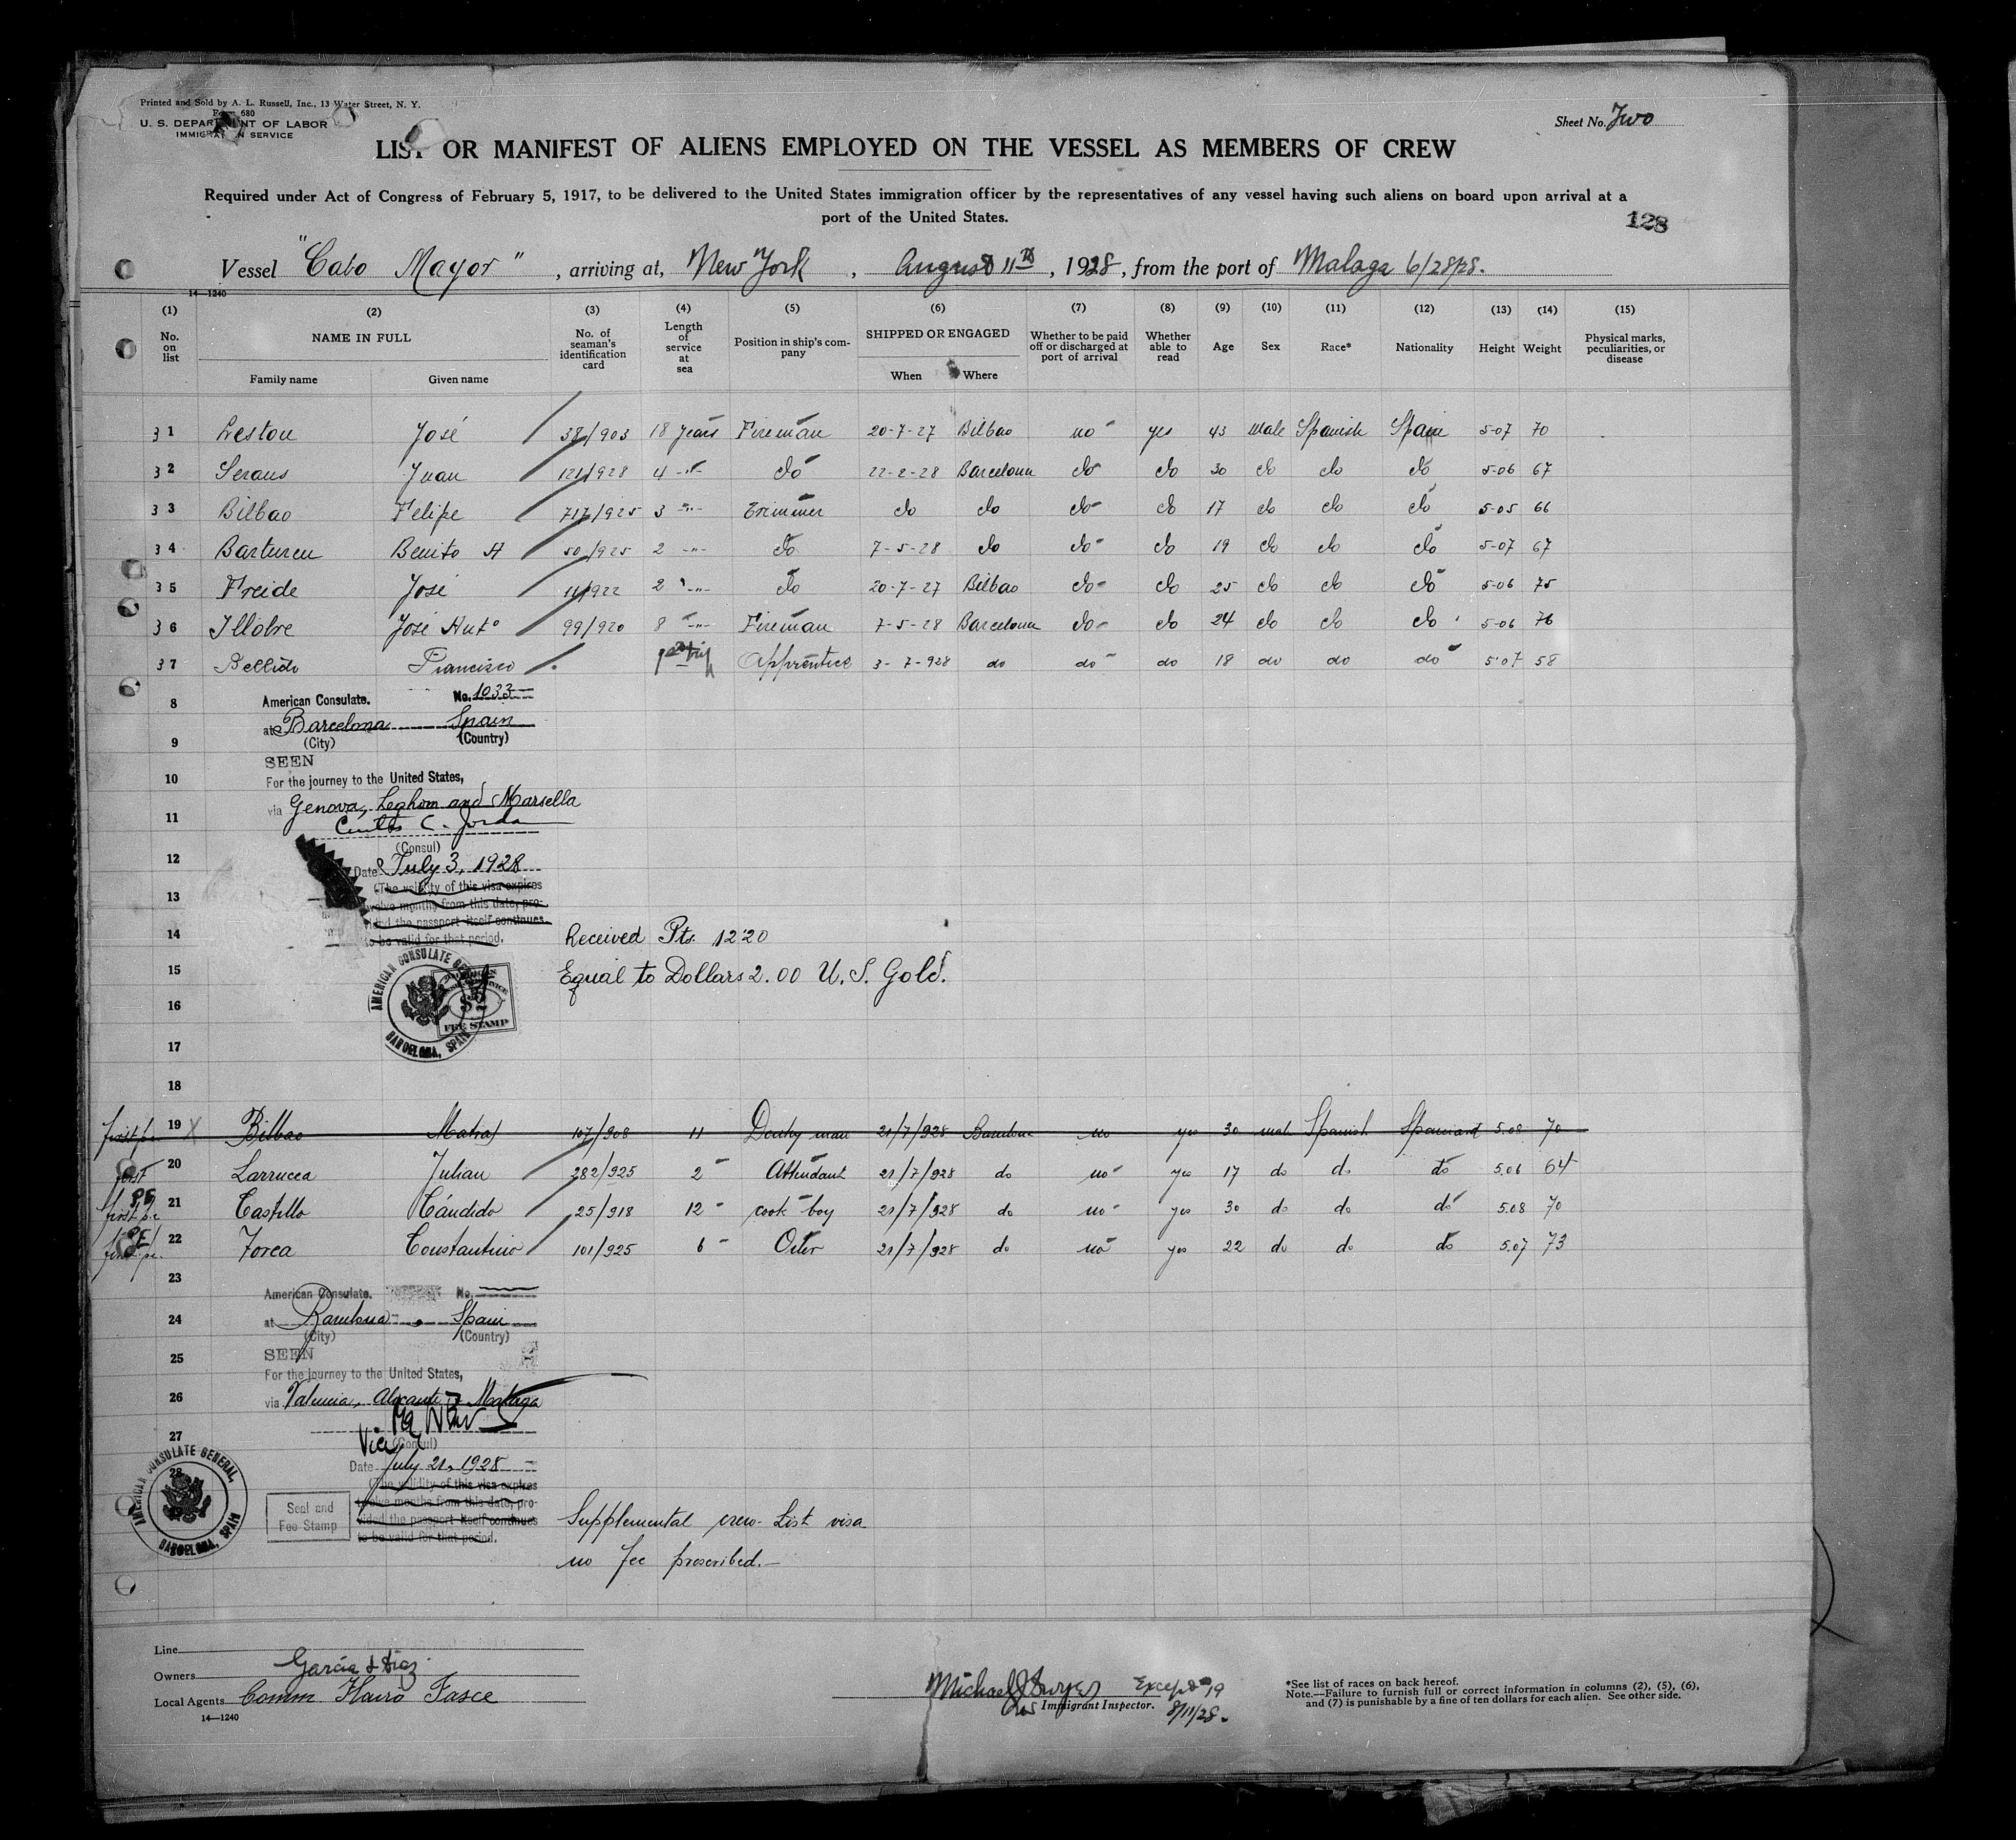 Printed and Sold by A. L. Russell, Inc., 13 Water Street, N. Y.
Form 680
U. S. DEPARTMENT OF LABOR
IMMIGRATION SERVICE
Sheet No. Two
LIST OR MANIFEST OF ALIENS EMPLOYED ON THE VESSEL AS MEMBERS OF CREW
Required under Act of Congress of February 5, 1917, to be delivered to the United States immigration officer by the representatives of any vessel having such aliens on board upon arrival at a
port of the United States.
128
Vessel "Cabo Mayor", arriving at, New York, August 11th, 1928, from the port of Malaga 6/28/28.
14—1240
(1) (2) (3) (4) (5) (6) (7) (8) (9) (10) (11) (12) (13) (14) (15)
No. on list NAME IN FULL Family name Given name No. of seaman's identification card Length of service at sea Position in ship's company SHIPPED OR ENGAGED When Where Whether to be paid off or discharged at port of arrival Whether able to read Age Sex Race* Nationality Height Weight Physical marks, peculiarities, or disease
31 Leston José 38/903 18 years Fireman 20-7-27 Bilbao no yes 43 male Spanish Spain 5-07 70
32 Serans Juan 121/928 4 -"- do 22-2-28 Barcelona do do 30 do do do 5-06 67
33 Bilbao Felipe 717/925 3 -"- Trimmer do do do do 17 do do do 5-05 66
34 Barturen Benito A 50/925 2 -"- do 7-5-28 do do do 19 do do do 5-07 67
35 Freide José 11/922 2 -"- do 20-7-27 Bilbao do do 25 do do do 5-06 75
36 Illobre José Anto 99/920 8 -"- Fireman 7-5-28 Barcelona do do 24 do do do 5-06 76
37 Bellido Francisco Apprentice 3-7-928 do do do 18 do do do 5'07 58
8 American Consulate. No. 1033
at Barcelona Spain
9 (City) (Country)
SEEN
10 For the journey to the United States,
11 via Genova, Leghorn and Marsella
Curtis C. Jordan
(Consul)
12 Date July 3, 1928
(The validity of this visa expires
13 twelve months from this date, pro-
vided the passport itself continues
to be valid for that period.
14 Received Pts. 12'20
15 Equal to Dollars 2.00 U. S. Gold.
AMERICAN CONSULATE GENERAL BARCELONA, SPAIN
$2 FEE STAMP
16
17
18
19 Bilbao 107/908 11 Donkey man 21/7/928 Barcelona no yes 30 male Spanish Spaniard 5.08 70
first 20 Larrucea Julian 282/925 2 Attendant 21/7/928 do no yes 17 do do do 5.06 64
21 Castillo Cándido 25/918 12 cook boy 21/7/928 do no yes 30 do do do 5.08 70
22 Forca Constantino 101/925 6 Oiler 21/7/928 do no yes 22 do do do 5.07 73
23
American Consulate. No.
24 at Barcelona, Spain
(City) (Country)
25 SEEN
For the journey to the United States,
26 via Valencia, Alicante, Malaga
27 Vice (Consul)
Date July 21, 1928
28 (The validity of this visa expires
twelve months from this date, pro-
vided the passport itself continues
to be valid for that period.
Seal and
Fee Stamp
AMERICAN CONSULATE GENERAL, BARCELONA, SPAIN
Supplemental crew List visa
no fee prescribed.—
Line
Owners Garcia & Diaz
Local Agents Comm. Flavio Fasce
14—1240
Except #19
Immigrant Inspector. 8/11/28.
*See list of races on back hereof.
Note.—Failure to furnish full or correct information in columns (2), (5), (6),
and (7) is punishable by a fine of ten dollars for each alien. See other side.